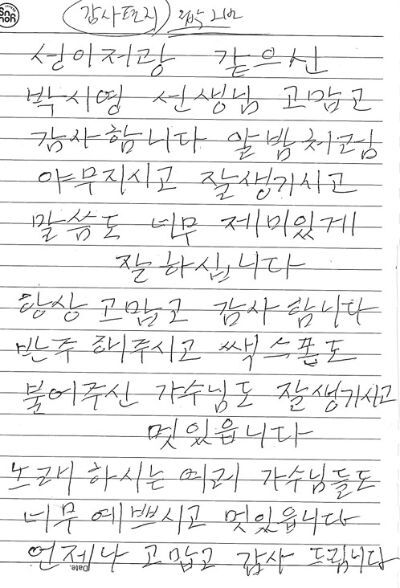 감사편지
성이저랑 같으신
박시영 선생님 고맙고
감사합니다 알밤처럼
야무지시고 잘생기시고
말씀도 너무 제미있게
잘하십니다
항상 고맙고 감사합니다
반주 해주시고 쌕스폰도
불어주신 가수님도 잘생기시고
멋있읍니다
노래 하시는 여러 가수님들도
너무 예쁘시고 멋있읍니다
언제나 고맙고 감사 드립니다
Date.